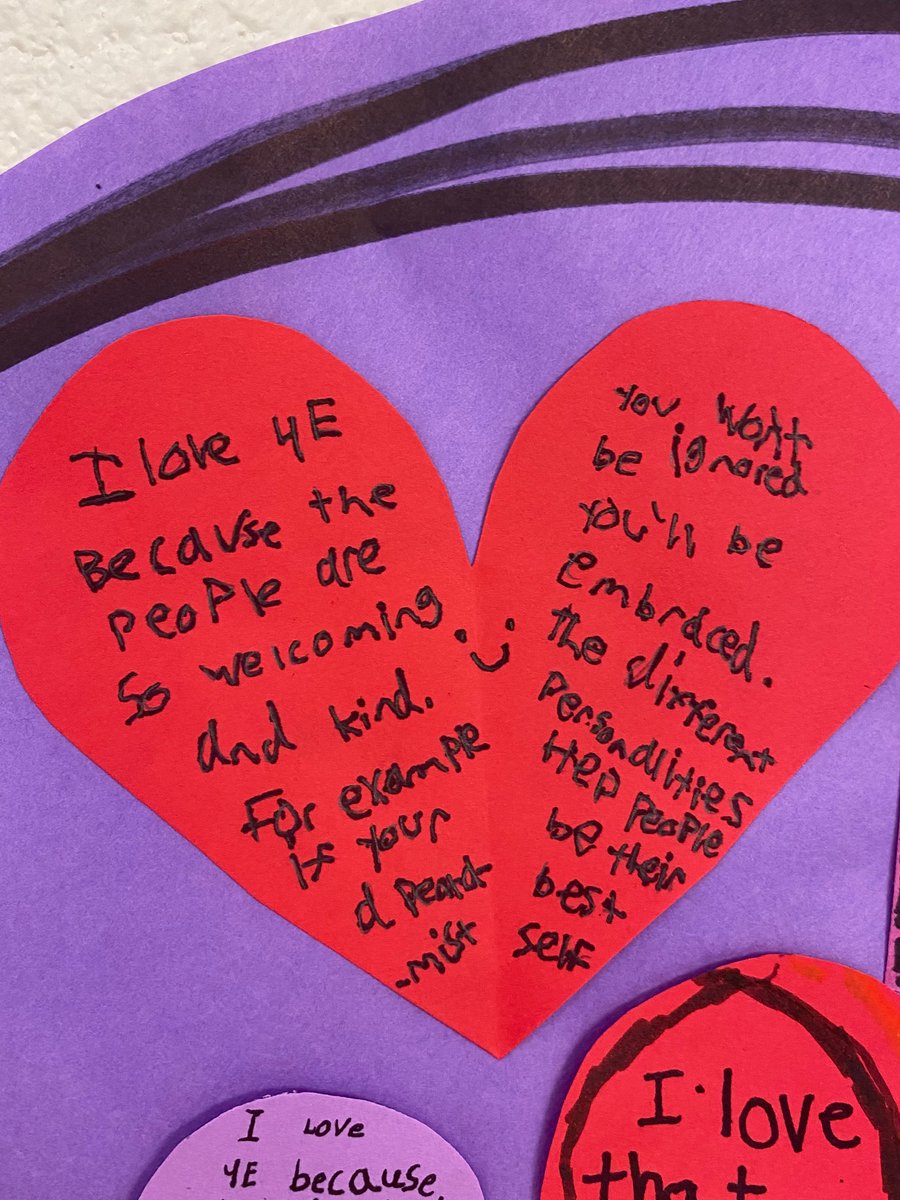 I love 4E
Because the
people are
so welcoming
and kind.
For example
If your
a peard
-mist
You wont
be ignored
You'll be
embraced.
the different
personalities
Help people
be their
best
self
I LOVE
4E because
I love
that